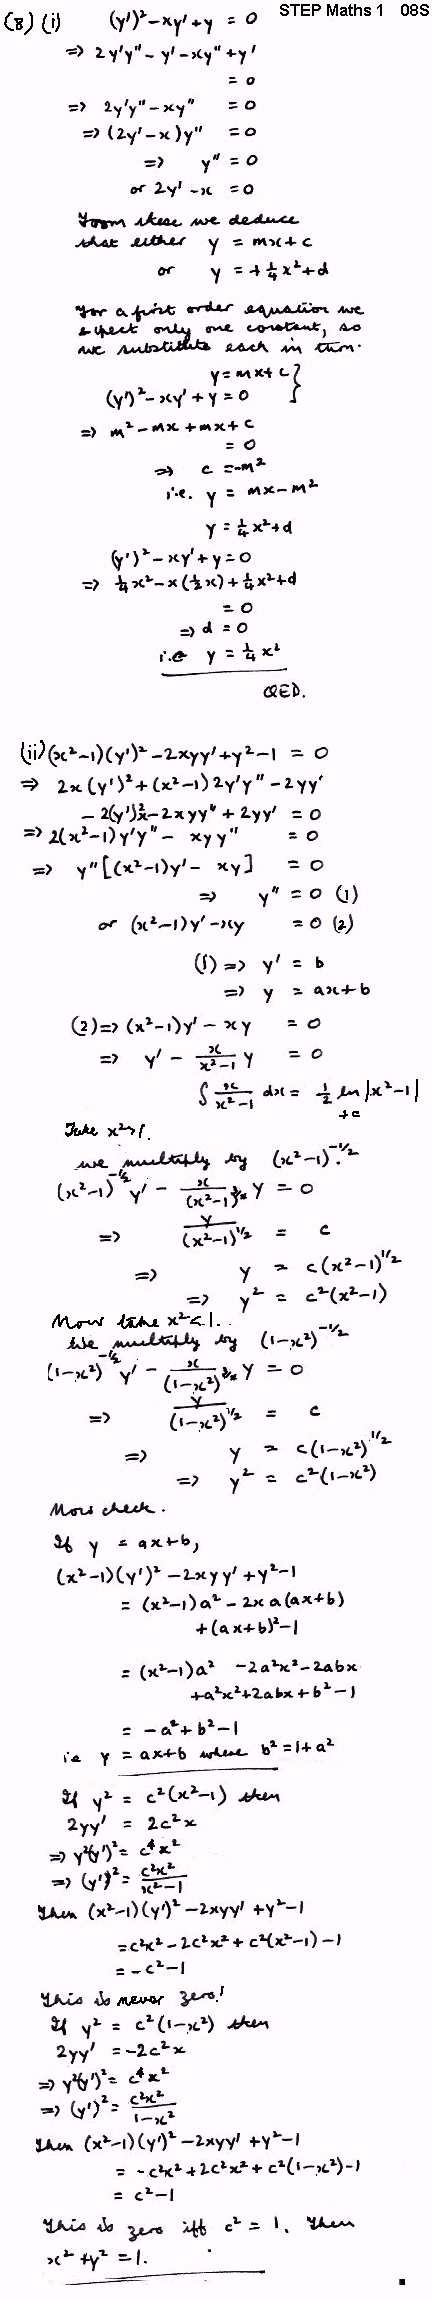 STEP Maths 1 08S
(8) (i) (y')² - xy' + y = 0
⇒ 2y'y" - y' - xy" + y'
= 0
⇒ 2y'y" - xy" = 0
⇒ (2y' - x)y" = 0
⇒ y" = 0
or 2y' - x = 0
From these we deduce
that either y = mx + c
or y = +¼x² + d
For a first order equation we
expect only one constant, so
we substitute each in turn.
y = mx + c }
(y')² - xy' + y = 0 }
⇒ m² - mx + mx + c
= 0
⇒ c = -m²
i.e. y = mx - m²
y = ¼x² + d
(y')² - xy' + y = 0
⇒ ¼x² - x(½x) + ¼x² + d
= 0
⇒ d = 0
i.e y = ¼x²
QED.
(ii) (x²-1)(y')² - 2xyy' + y² - 1 = 0
⇒ 2x(y')² + (x²-1)2y'y" - 2yy'
- 2(y')²x - 2xyy" + 2yy' = 0
⇒ 2(x²-1)y'y" - xyy" = 0
⇒ y"[(x²-1)y' - xy] = 0
⇒ y" = 0 (1)
or (x²-1)y' - xy = 0 (2)
(1) ⇒ y' = b
⇒ y = ax + b
(2) ⇒ (x²-1)y' - xy = 0
⇒ y' - x/(x²-1) y = 0
∫ x/(x²-1) dx = ½ ln|x²-1|
+c
Take x²>1.
We multiply by (x²-1)^-1/2.
(x²-1)^-1/2 y' - x/(x²-1)^3/2 y = 0
⇒ y/(x²-1)^1/2 = c
⇒ y = c(x²-1)^1/2
⇒ y² = c²(x²-1)
Now take x²<1.
We multiply by (1-x²)^-1/2
(1-x²)^-1/2 y' - x/(1-x²)^3/2 y = 0
⇒ y/(1-x²)^1/2 = c
⇒ y = c(1-x²)^1/2
⇒ y² = c²(1-x²)
Now check.
If y = ax+b,
(x²-1)(y')² - 2xyy' + y² - 1
= (x²-1)a² - 2xa(ax+b)
+ (ax+b)² - 1
= (x²-1)a² - 2a²x² - 2abx
+ a²x² + 2abx + b² - 1
= -a² + b² - 1
ie y = ax+b where b² = 1+a²
If y² = c²(x²-1) then
2yy' = 2c²x
⇒ y²(y')² = c⁴x²
⇒ (y')² = c²x²/(x²-1)
Then (x²-1)(y')² - 2xyy' + y² - 1
= c²x² - 2c²x² + c²(x²-1) - 1
= -c² - 1
This is never zero!
If y² = c²(1-x²) then
2yy' = -2c²x
⇒ y²(y')² = c⁴x²
⇒ (y')² = c²x²/(1-x²)
Then (x²-1)(y')² - 2xyy' + y² - 1
= -c²x² + 2c²x² + c²(1-x²) - 1
= c² - 1
This is zero iff c² = 1. Then
x² + y² = 1.